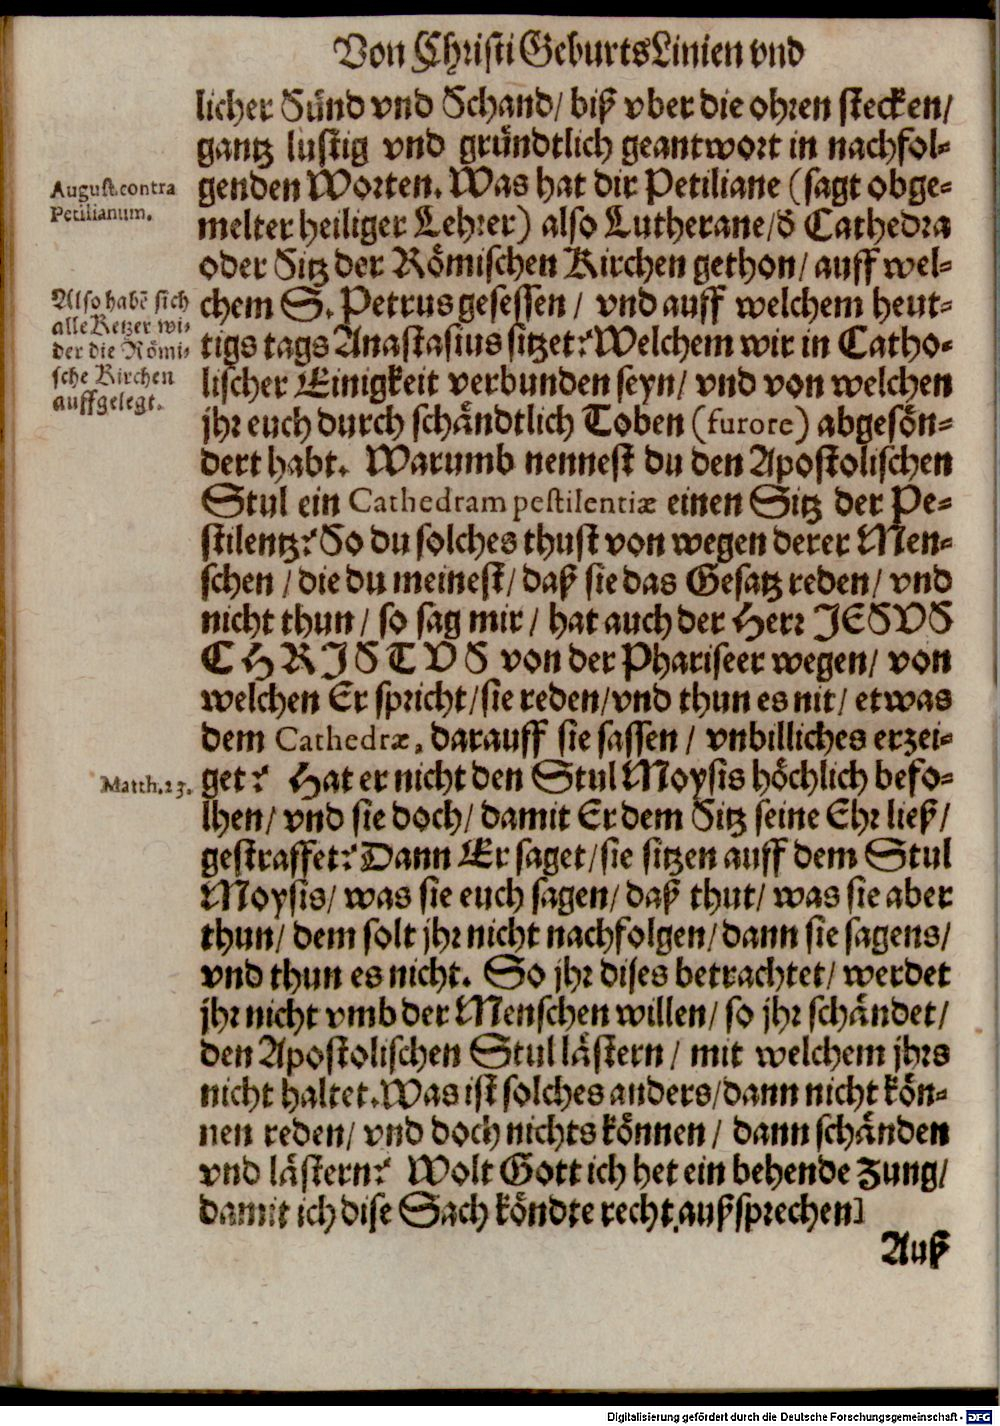 Von Christi Geburts Linien vnd
licher Sünd vnd Schand/ biß vber die ohren stecken/
gantz lustig vnd gründtlich geantwort in nachfol-
genden Worten. Was hat dir Petiliane (sagt obge-
August. contra
Petilianum.
melter heiliger Lehrer) also Lutherane/ d̕ Cathedra
oder Sitz der Römischen Kirchen gethon/ auff wel-
chem S. Petrus gesessen / vnd auff welchem heut-
Also habē sich
alle Ketzer wi-
der die Römi-
sche Kirchen
auffgelegt.
tigs tags Anastasius sitzet? Welchem wir in Catho-
lischer Einigkeit verbunden seyn/ vnd von welchen
jhr euch durch schändtlich Toben (furore) abgesön-
dert habt. Warumb nennest du den Apostolischen
Stul ein Cathedram pestilentiæ einen Sitz der Pe-
stilentz? So du solches thust von wegen derer Men-
schen / die du meinest/ daß sie das Gesatz reden/ vnd
nicht thun/ so sag mir/ hat auch der Herr JESVS
CHRISTVS von der Phariseer wegen/ von
welchen Er spricht/ sie reden/ vnd thun es nit/ etwas
dem Cathedræ, darauff sie sassen / vnbilliches erzei-
get? Hat er nicht den Stul Moysis höchlich befo-
Matth. 23.
lhen/ vnd sie doch/ damit Er dem Sitz seine Ehr ließ/
gestraffet? Dann Er saget/ sie sitzen auff dem Stul
Moysis/ was sie euch sagen/ daß thut/ was sie aber
thun/ dem solt jhr nicht nachfolgen/ dann sie sagens/
vnd thun es nicht. So jhr dises betrachtet/ werdet
jhr nicht vmb der Menschen willen/ so jhr schändet/
den Apostolischen Stul lästern / mit welchem jhrs
nicht haltet. Was ist solches anders/ dann nicht kön-
nen reden/ vnd doch nichts können / dann schänden
vnd lästern? Wolt Gott ich het ein behende Zung/
damit ich dise Sach köndte recht außsprechen]
Auß
Digitalisierung gefördert durch die Deutsche Forschungsgemeinschaft - DFG